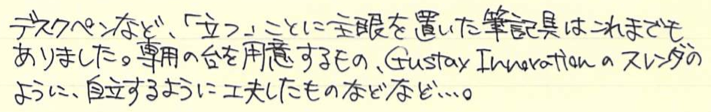 デスクペンなど、「立つ」ことに主眼を置いた筆記具はこれまでも
ありました。専用の台を用意するもの、Gustav Innovationのスレンダの
ように、自立するように工夫したものなどなど…。